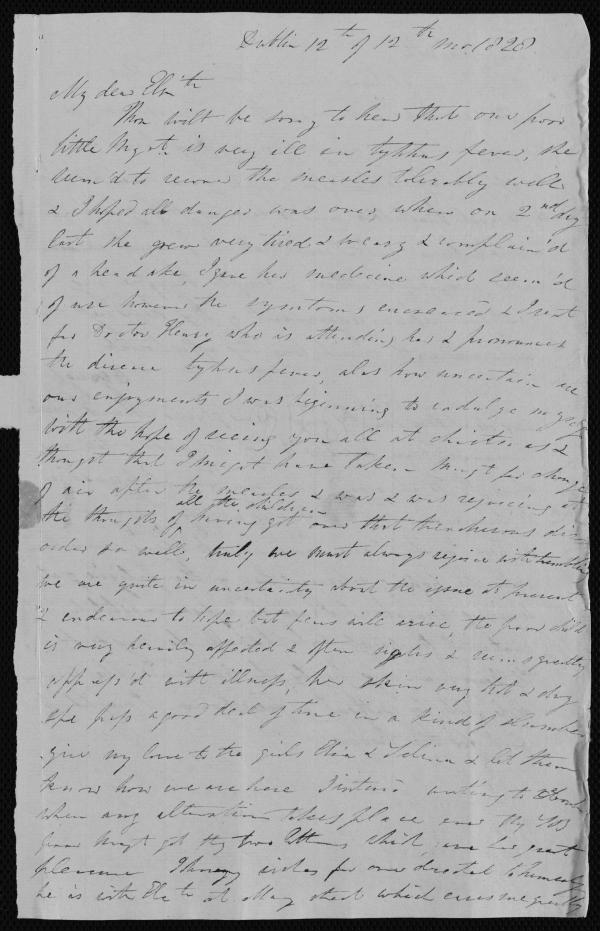 Dublin 12th of 12th mo. 1828.
My dear Elizth
Thou wilt be sorry to hear that our poor
little Margt. is very ill in typhus fever, she
seem'd to recover the measles tolerably well
& I hoped all danger was over, when on 2nd day
last she grew very tired & weary & complain'd
of a head ake, I gave her medecine which seem'd
of use however the symtoms encreased & I sent
for Doctor Henry who is attending her & pronounces
the disease typhus fever, alas how uncertain are
our enjoyments I was beginning to indulge myself
with the hope of seeing you all at & 
thought that I might have taken Margt for change
of air after the measles & was & was rejoicing at
the thoughts of all the children having got over that treacherous dis-
order so well, truly we must always rejoice with trembling
we are quite in uncertainty about the issue at present
& endeavour to hope but fears will arise, the poor child
is very heavily affected & often sighs & seems greatly
oppress'd with illness, her skin very hot & dry
she pass a good deal of time in a kind of slumber
give my love to the girls Eliza & Selina & let them
know how we are here I intend writing to
when any alteration takes place ever thy
poor Margt got thy two letters which gave her great
pleasure Thomas
he is with Elizth at Mary street which